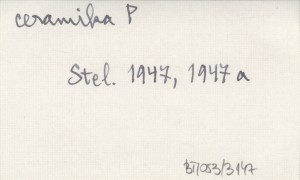 ceramika P
Stel. 1947, 1947 a
BT/053/3147